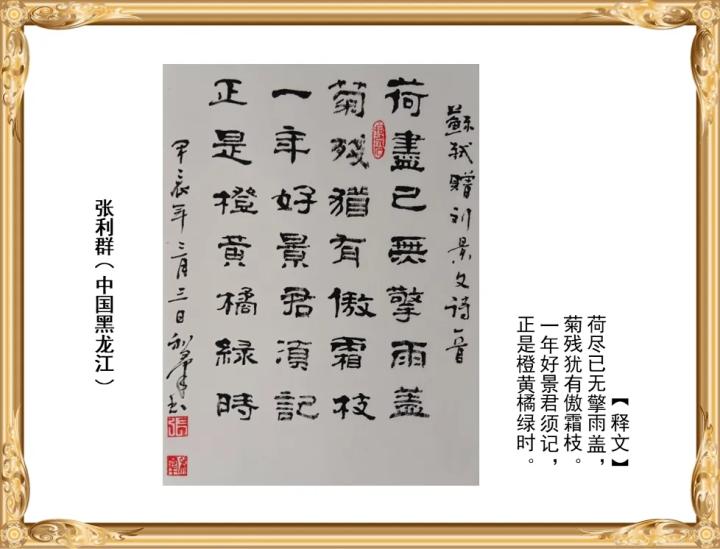 蘇軾贈刘景文诗一首
荷盡已無擎雨蓋
菊殘猶有傲霜枝
一年好景君須記
正是橙黄橘緑時
甲辰年三月三日利群书
张利群（中国黑龙江）
【释文】
荷尽已无擎雨盖，
菊残犹有傲霜枝。
一年好景君须记，
正是橙黄橘绿时。